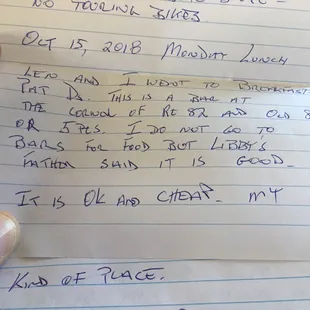 NO TOURING BIKES
OCT 15, 2018 MONDAY LUNCH
LEN AND I WENT TO BREAKFAST
PAT D'S. THIS IS A BAR AT
THE CORNOR OF RE 82 AND OLD 8
OR 5 PTS. I DO NOT GO TO
BARS FOR FOOD BUT LIBBY'S
FATHER SAID IT IS GOOD.
IT IS OK AND CHEAP. MY
KIND OF PLACE.